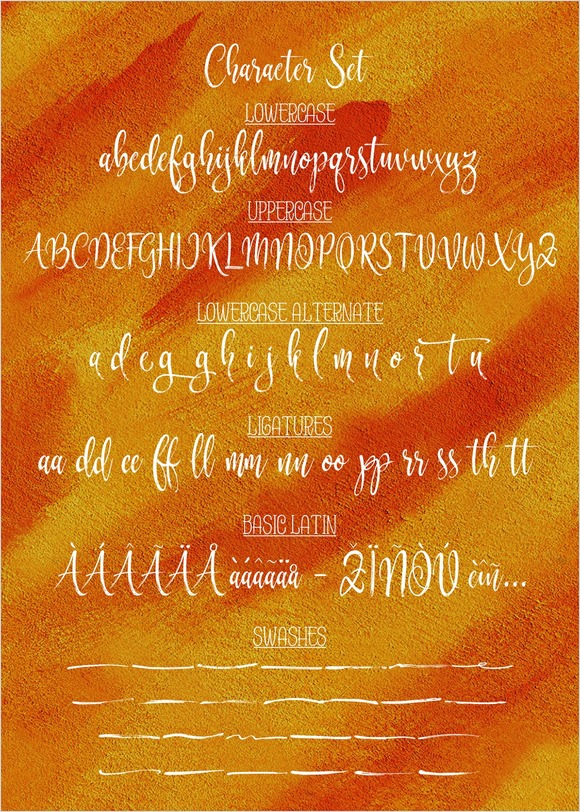 Character Set
LOWERCASE
abcdefghijklmnopqrstuvwxyz
UPPERCASE
ABCDEFGHIJKLMNOPQRSTUVWXYZ
LOWERCASE ALTERNATE
a d e g g h i j k l m n o r t u
LIGATURES
aa dd ee ff ll mm nn oo pp rr ss th tt
BASIC LATIN
ÀÁÂÃÄÅ àáâãäå - ŽÏÑÒÚ èîñ...
SWASHES